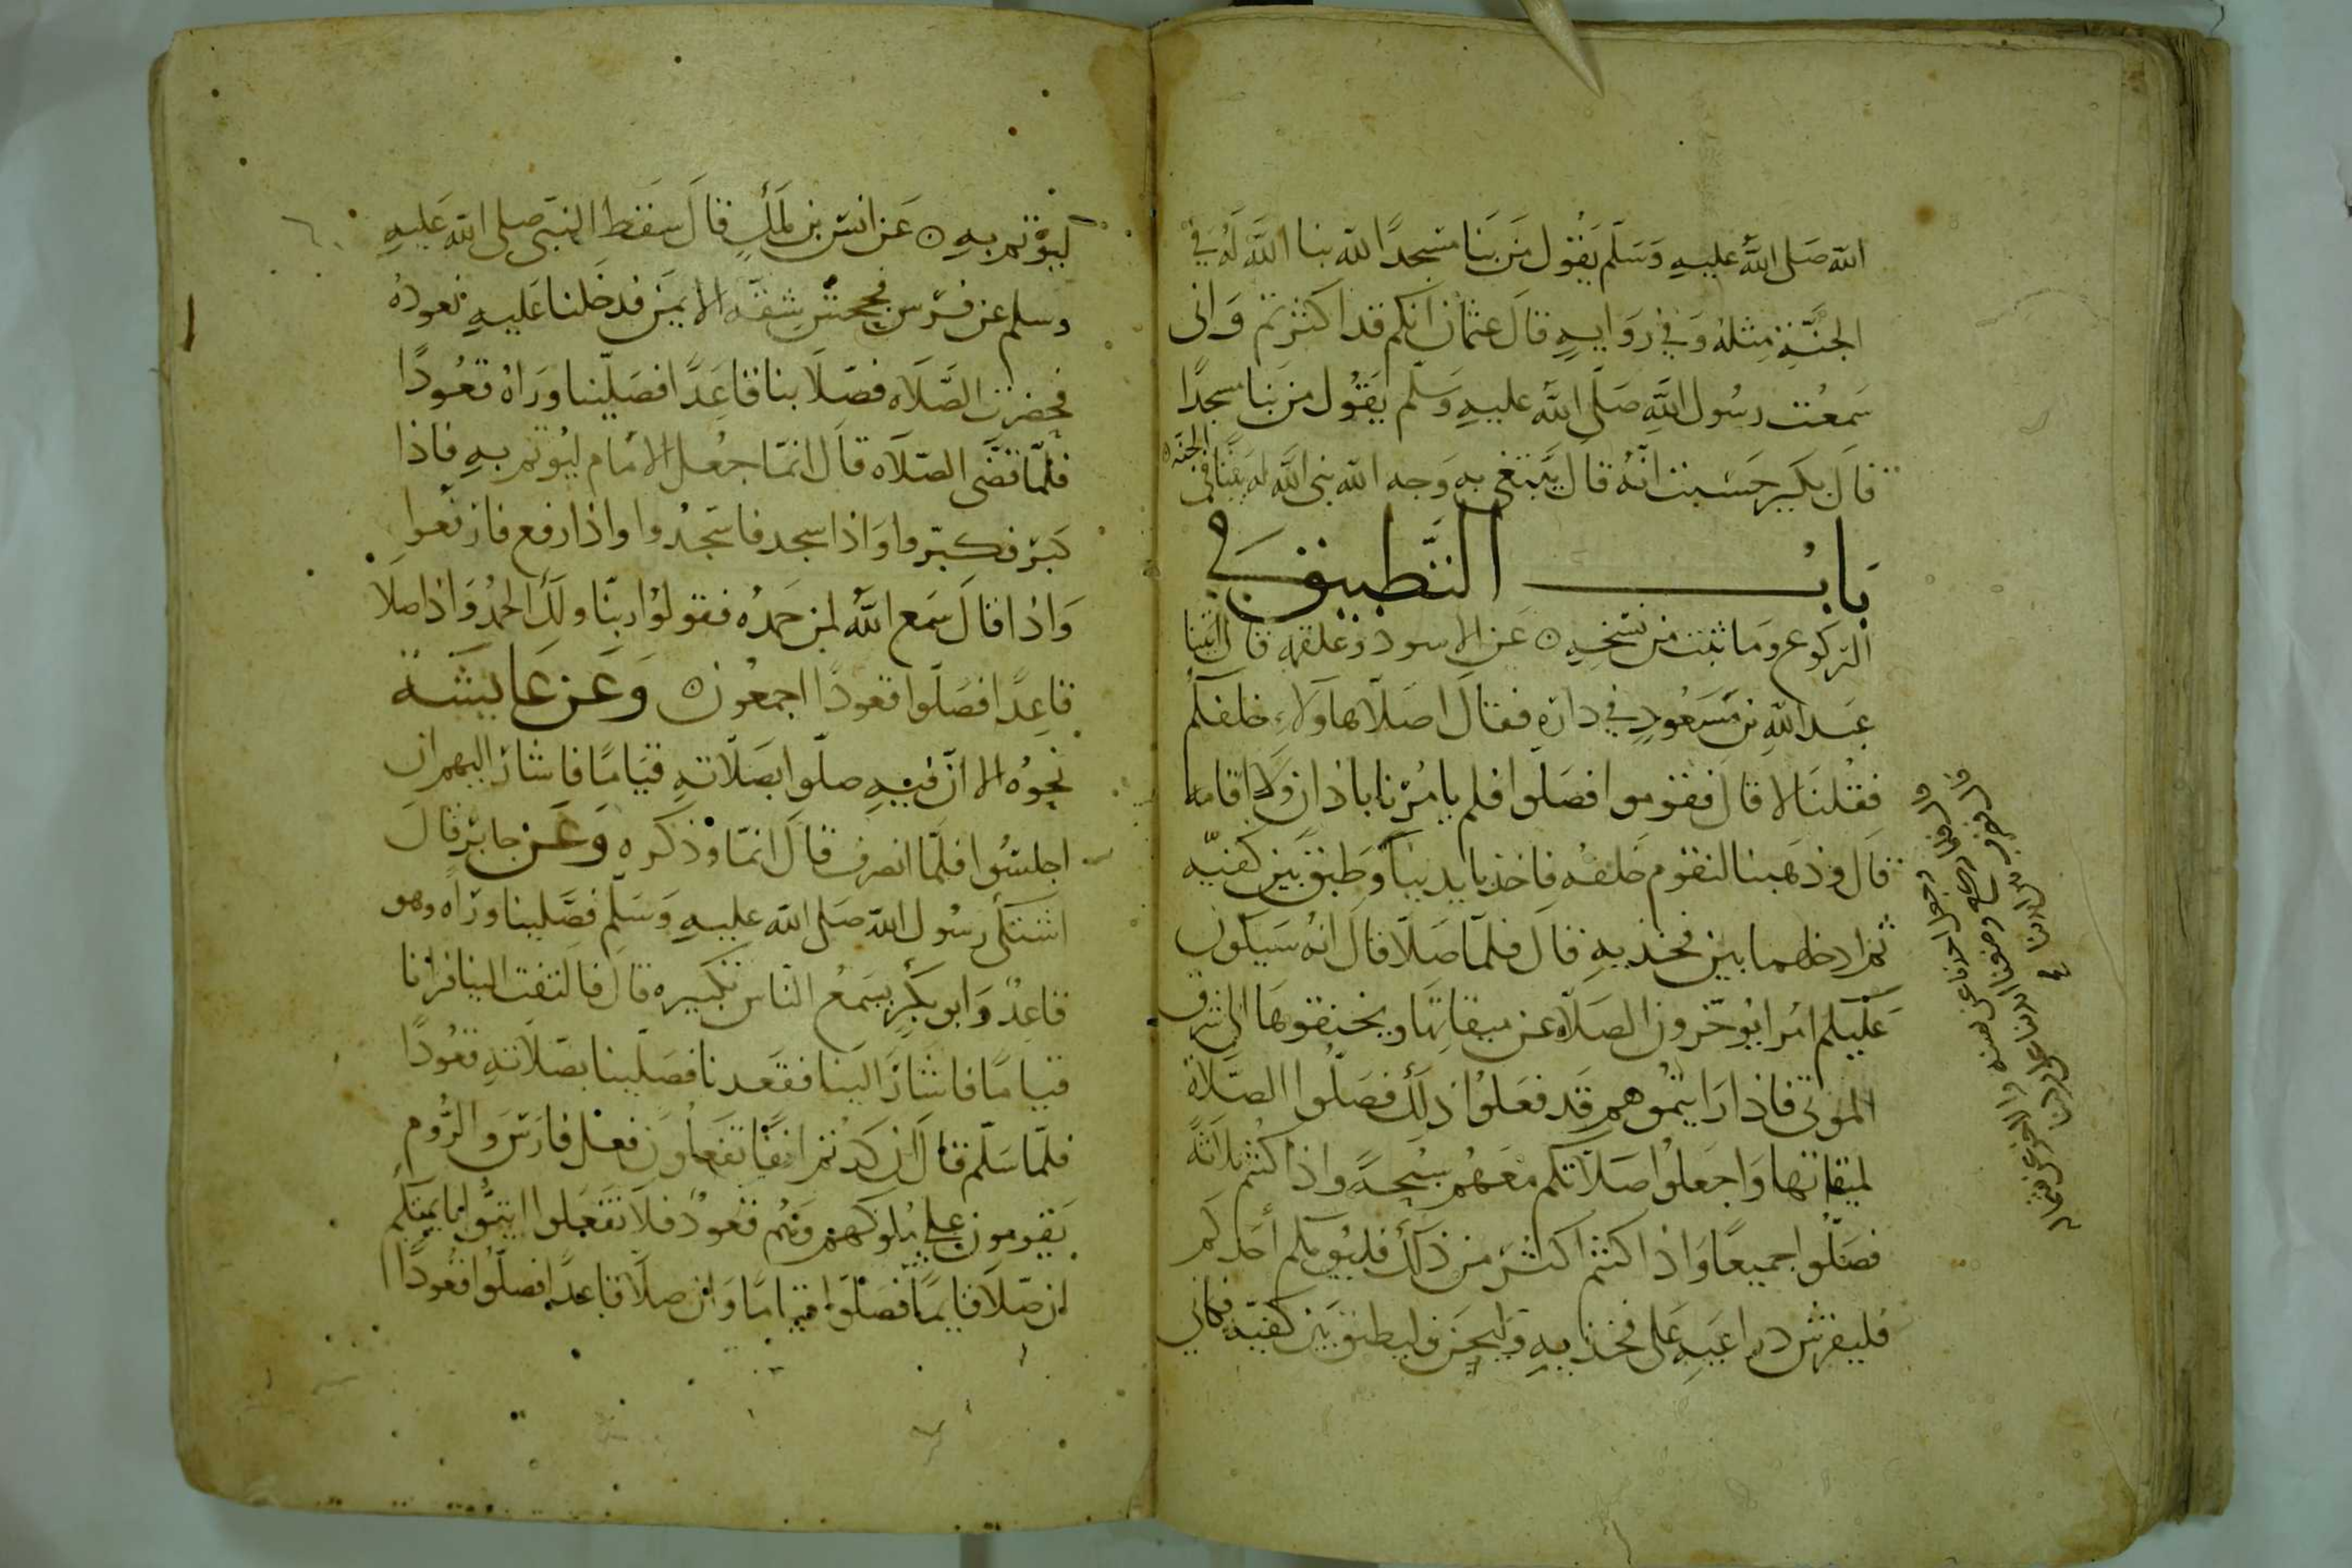 الله صَلى اللهُ عليهِ وَسَلّم يَقُول مَن بَنا مسجدًا لله بنا اللهُ لَهُ في
الجنَّةِ مِثلهُ وَفي رِوَايهٍ قالَ عثمانُ انكم قد اكثرتم وَانى
سَمعْت رسُول اللهِ صَلّى اللهُ عليهِ وَسَلّم يَقُول من بَنا مسجدًا
قالَ بكير حَسْبت انّهُ قال يَبتغى به وَجه الله بنى اللهُ له بَيتًا في الجنه
بَابُ التَّطبيق في
الرّكوع وَما ثبت من نسْخهِ عَن الاسود وعلقمه قال اتينا
عَبد اللهِ بن مَسعُودٍ في دارِهِ فقالَ اصَلّا هاولاءِ خلفكم
فقُلنَا لا قال فقوموا فصَلّوا فلم يامُرنا باذانٍ ولا اقامه
قالَ وذهَبنا لنقوم خلفهُ فاخذ بايدينا وَطبق بَين كفيّه
ثم ادخلهما بين فخذيهِ قالَ فلمّا صَلّا قالَ انهُ سَيكون
عَليْكم امُرا يُوخّرون الصَلاه عن ميقاتِها ويخنقوهَا الى شرق
الموتى فاذا رَايتمُوهم قَد فعَلوُا ذلك فصَلّوا الصَلاةَ
لميقاتها وَاجعَلوُا صَلاتكم معَهُم سُبحةً واذا كنتم ثلاثةً
فصَلّوا جميعًا وَاذا كنتم اكثر من ذلك فليؤمكم أحَدكم
فليفرش دراعَيهِ عَلى فخذيهِ وَليحن وليطبق بَين كفيّه فكاني
ليُؤتم بهِ عَن انس بن ملكٍ قالَ سَقط النبَي صلى الله عَليهِ
وسلم عن فرَسٍ فجحش شِقّهُ الايمن فدخلنا عَليهِ نعودُهُ
فحضرت الصَّلاه فصَلّا بنا قاعِدًا فصَلّينا ورَاهُ قعُودًا
فلمّا قضَى الصَلاه قالَ انمّا جعُل الامَام ليُؤتم بهِ فاذا
كبّر فكبّروا وَاذا سجد فاسجُدوا واذا رفع فارفعوا
وَاذا قالَ سَمع اللهُ لمن حَمدُه فقولوُا ربنّا ولكَ الحمدُ وَاذا صلّا
قاعِدًا فصَلّوا قعودًا اجمعُون وَعَن عَايشَة
نحوُه الا انّ فيهِ صلّوا بصَلاتهِ قيَامًا فاشارَ اليهم ان
اجلسُوا فلمّا انصرف قالَ انمّا وذكره وَعَن جابرٍ قالَ
اشتكى رسُول الله صَلى الله عليهِ وَسَلّم فصَّلينا ورَاه وهو
قاعدٌ وَابو بكرٍ يسَمعُ النّاس تكبيره قال فالتفت الينا فرانا
قيامًا فاشارَ الينا فقَعدنا فصَلّينا بصَلاتهِ قعُودًا
فلمّا سَلّم قالَ ان كدتم انفًا تفعَلون فعل فارسَ والرُّوم
يَقومون على ملوكهم وَهُم قعودٌ فلا تفعَلوا ايتمُّوا بايمتكم
ان صَلّا قايمًا فصَلّوا قيامًا وَان صلّا قاعدًا فصلّوا قعُودًا